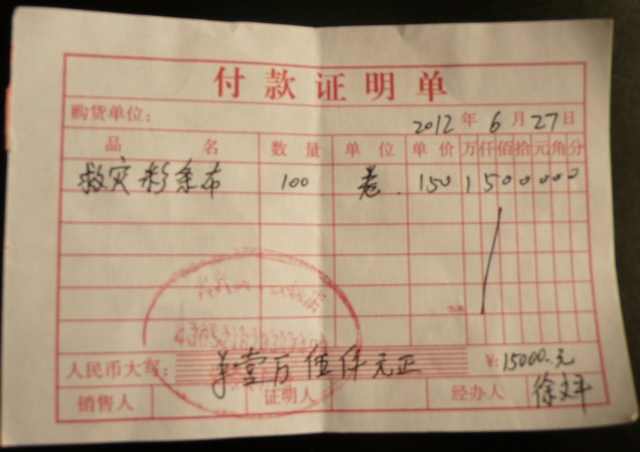 付款证明单
购货单位：
2012年6月27日
品名 数量 单位 单价 万仟佰拾元角分
救灾彩条布 100 卷 150 1500000
人民币大写： 壹万伍仟元正 ¥：15000.元
销售人 证明人 经办人